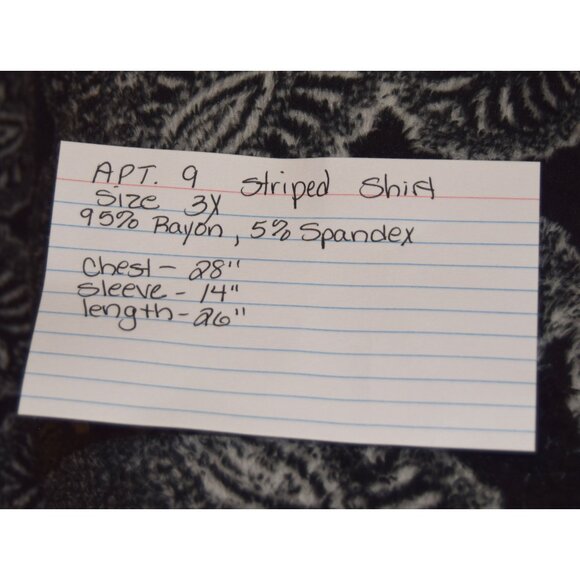 APT. 9 Striped Shirt
Size 3X
95% Rayon, 5% Spandex
Chest - 28"
Sleeve - 14"
length - 26"